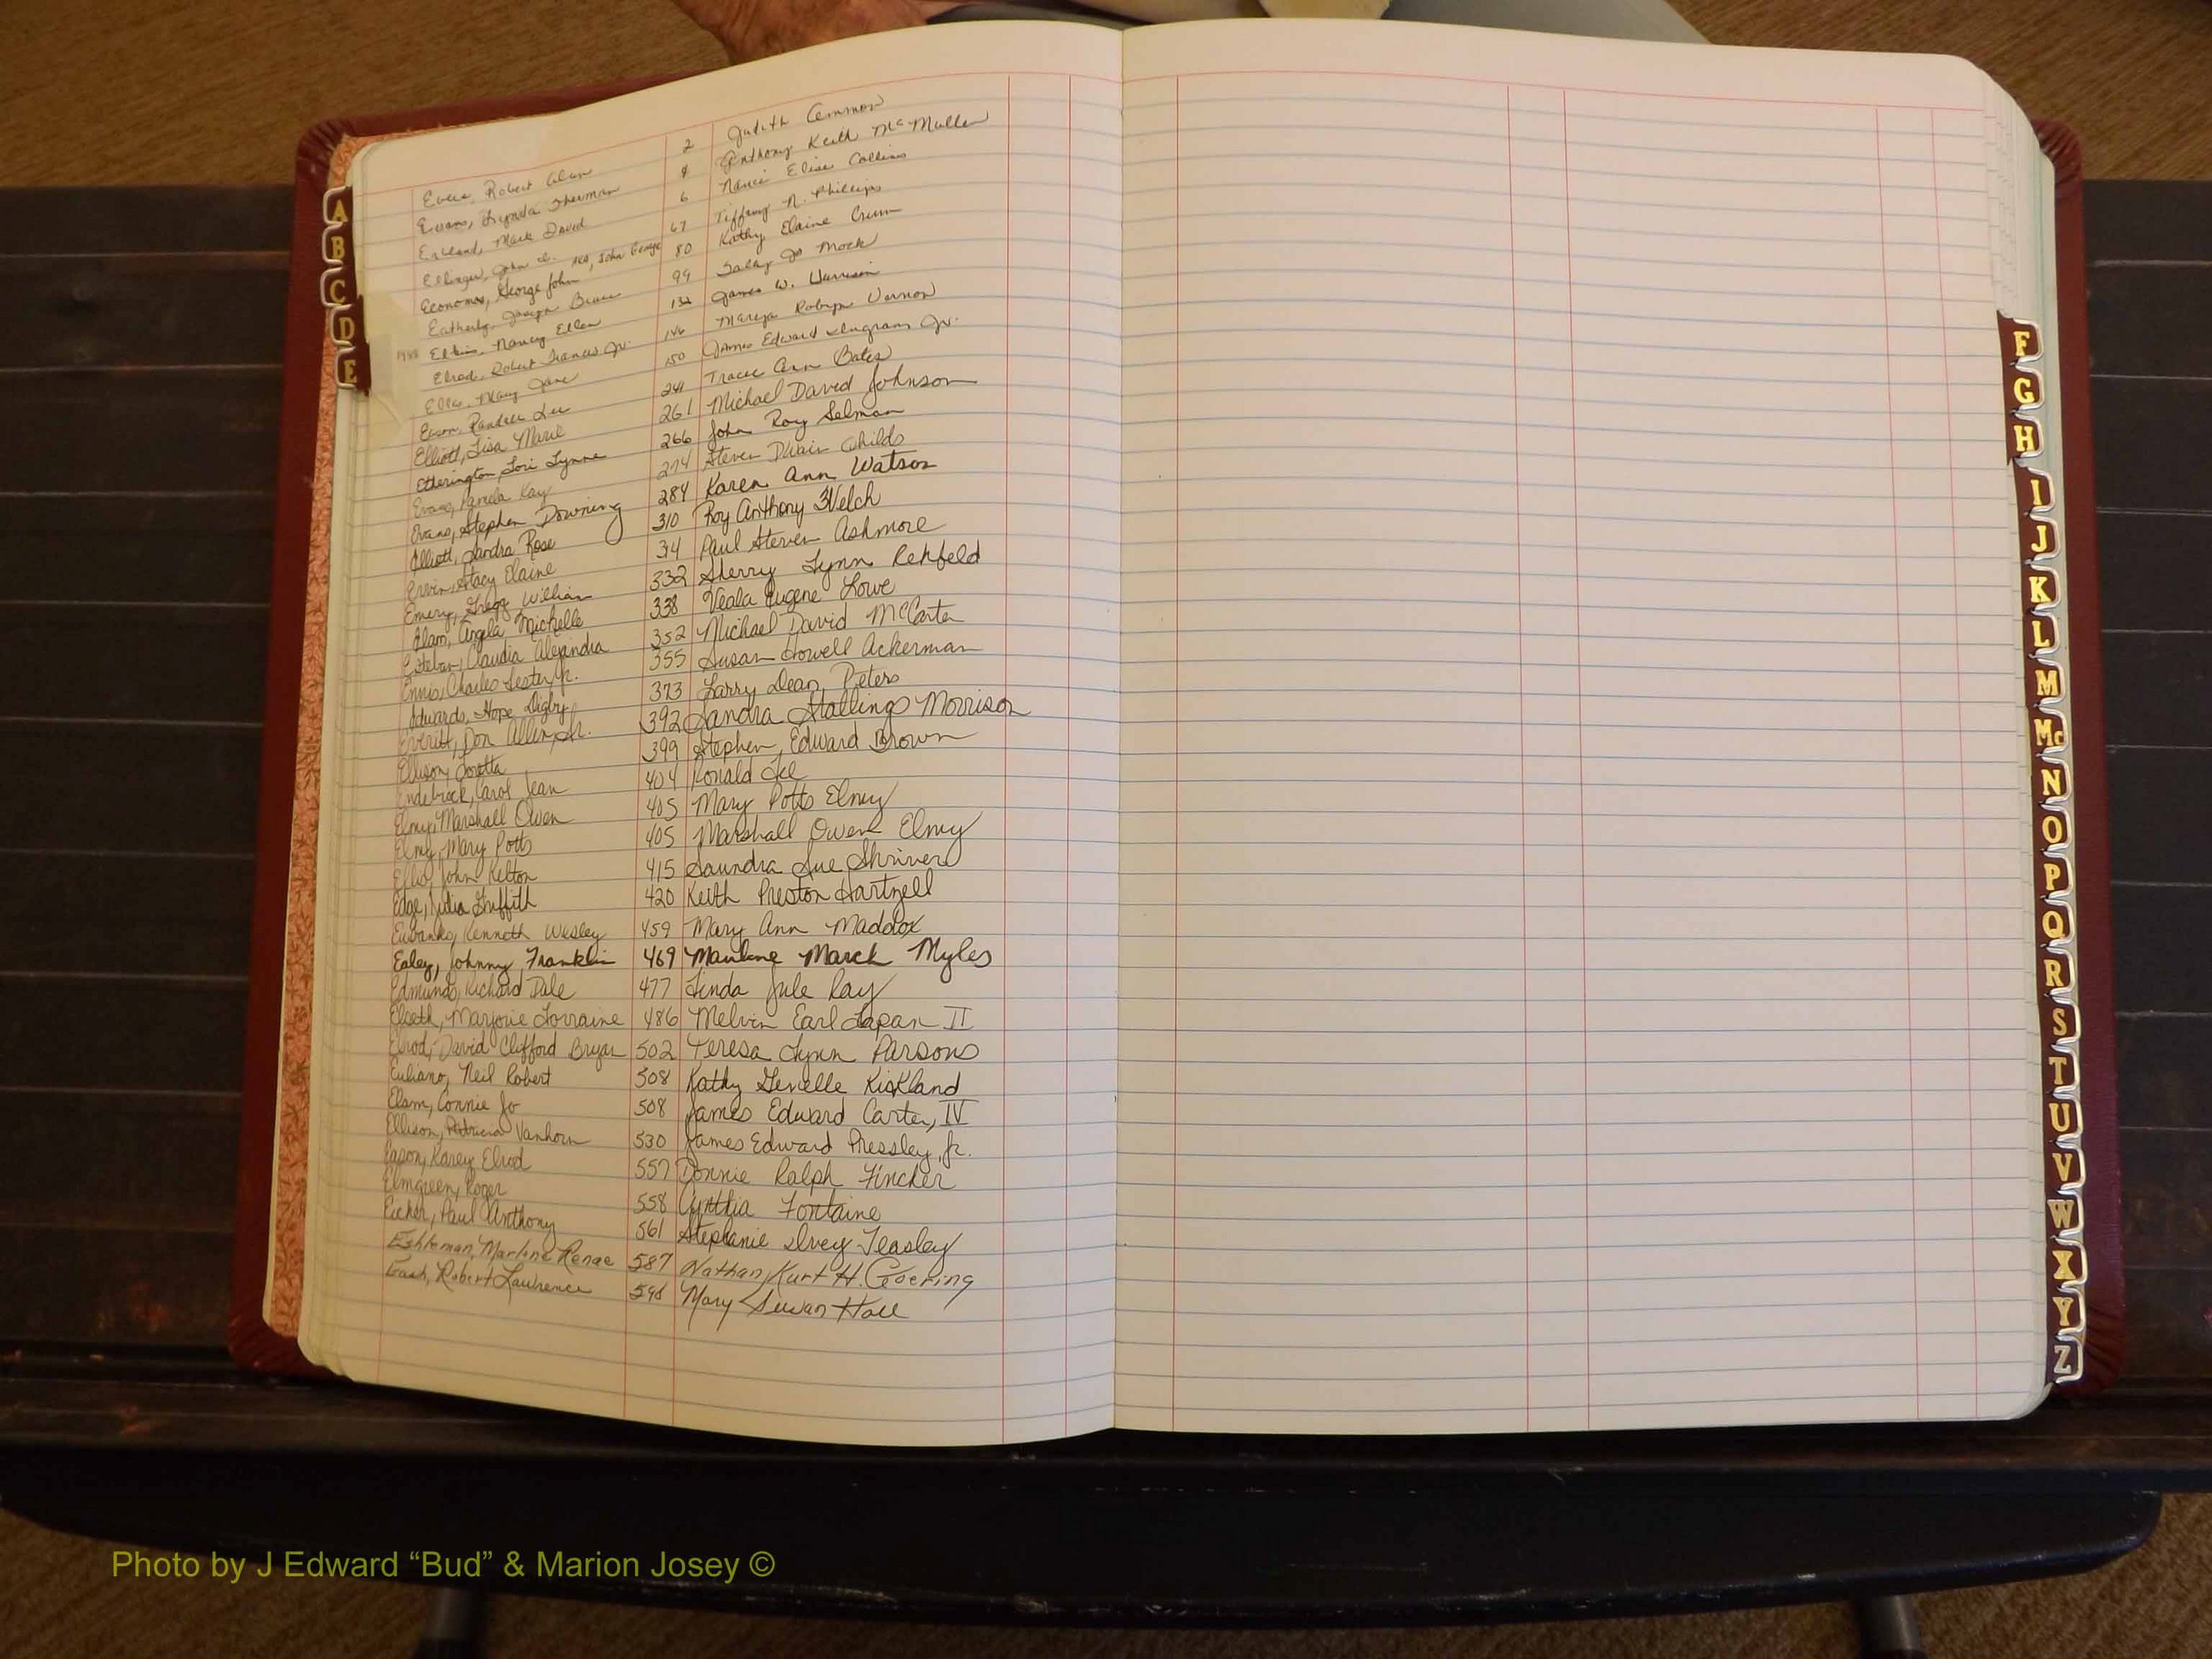 Robert Alan 2 Judith Cemmon
Evans, Lynda Sherman 4 Anthony Keith McMullen
England, Mark David 6 Nanci Elise Collins
Ellinger, John 67 Tiffany N. Phillips
Economos, George John AKA, John George 80 Kathy Elaine Crum
Eatherly, Joseph Bruce 99 Sally Jo Mock
1988 Elkins, Nancy Ellen 132 James W. Harrison
Elrod, Robert Francis Jr. 146 Robyn Vernon
Ellis, Mary Jane 150 James Edward Ingram Jr.
Randall Lee 241 Tracee Ann Bates
Elliott, Lisa Marie 261 Michael David Johnson
Etherington, Lori Lynne 266 John Roy Selman
Evans, Pamela Kay 274 Steven Dwain Childs
Evans, Stephen Downing 284 Karen Ann Watson
Elliott, Sandra Rose 310 Roy Anthony Welch
Ervin, Stacy Elaine 314 Paul Steven Ashmore
Emery, Gregg William 332 Sherry Lynn Rehfeld
Elam, Angela Michelle 338 Veala Eugene Lowe
Esteban, Claudia Alejandra 352 Michael David McCarter
Ennis, Charles Lester, Jr. 355 Susan Howell Ackerman
Edwards, Hope Digby 373 Larry Dean Peters
Everitt, Don Allen, Sr. 392 Sandra Stallings Morrison
Ellison, Loretta 399 Stephen Edward Brown
Endebrock, Carol Jean 404 Ronald Lee
Elmy, Marshall Owen 405 Mary Potts Elmy
Elmy, Mary Potts 405 Marshall Owen Elmy
Ellis, John Kelton 415 Saundra Sue Shriver
Edge, Julia Griffith 420 Keith Preston Hartzell
Eubanks, Kenneth Wesley 459 Mary Ann Maddox
Ealey, Johnny Franklin 469 Marlene March Myles
Edmunds, Richard Dale 477 Linda Jule Ray
Elseth, Marjorie Lorraine 486 Melvin Earl Lapan II
Elrod, David Clifford Bryan 502 Teresa Lynn Parsons
Euliano, Neil Robert 508 Kathy Genelle Kirkland
Elam, Connie Jo 508 James Edward Carter, IV
Ellison, Patricia Vanhorn 530 James Edward Pressley, Jr.
Eason, Karey Elrod 557 Donnie Ralph Fincher
Elmgreen, Roger 558 Cynthia Fontaine
Eicher, Paul Anthony 561 Stephanie Ivey Teasley
Eshleman, Marlene Renae 587 Nathan Kurt H. Goering
Robert Lawrence 598 Mary Susan Hall
A
B
C
D
E
F
G
H
I
J
K
L
M
Mc
N
O
P
Q
R
S
T
U
V
W
X
Y
Z
Photo by J Edward “Bud” & Marion Josey ©